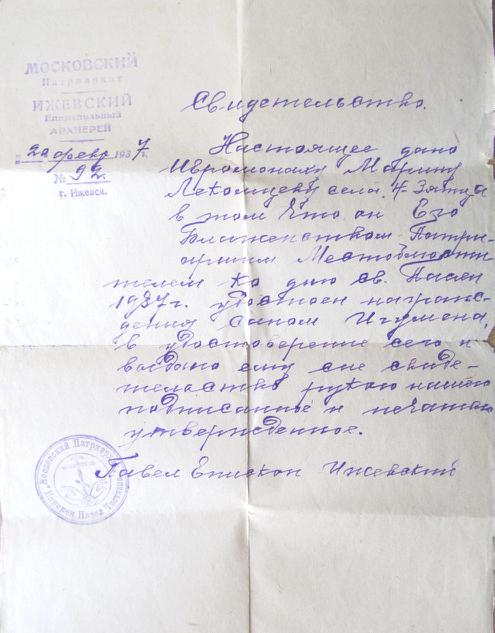 МОСКОВСКИЙ
Патриархат
ИЖЕВСКИЙ
Епархиальный
АРХИЕРЕЙ
"20" февр 1937 г.
№ 92
г. Ижевск.
Свидетельство.
Настоящее дано
Иеромонаху
села
в этом что он Его
Блаженством Патри-
аршим Местоблюсти-
телем ко дню св. Пасхи
1937 г. удостоен награж-
дения Саном Игумена,
в удостоверение сего и
выдано ему сие свиде-
тельство рукою нашею
подписанное и печатью
утвержденное.
Павел Епископ Ижевский
Московский Патриархат